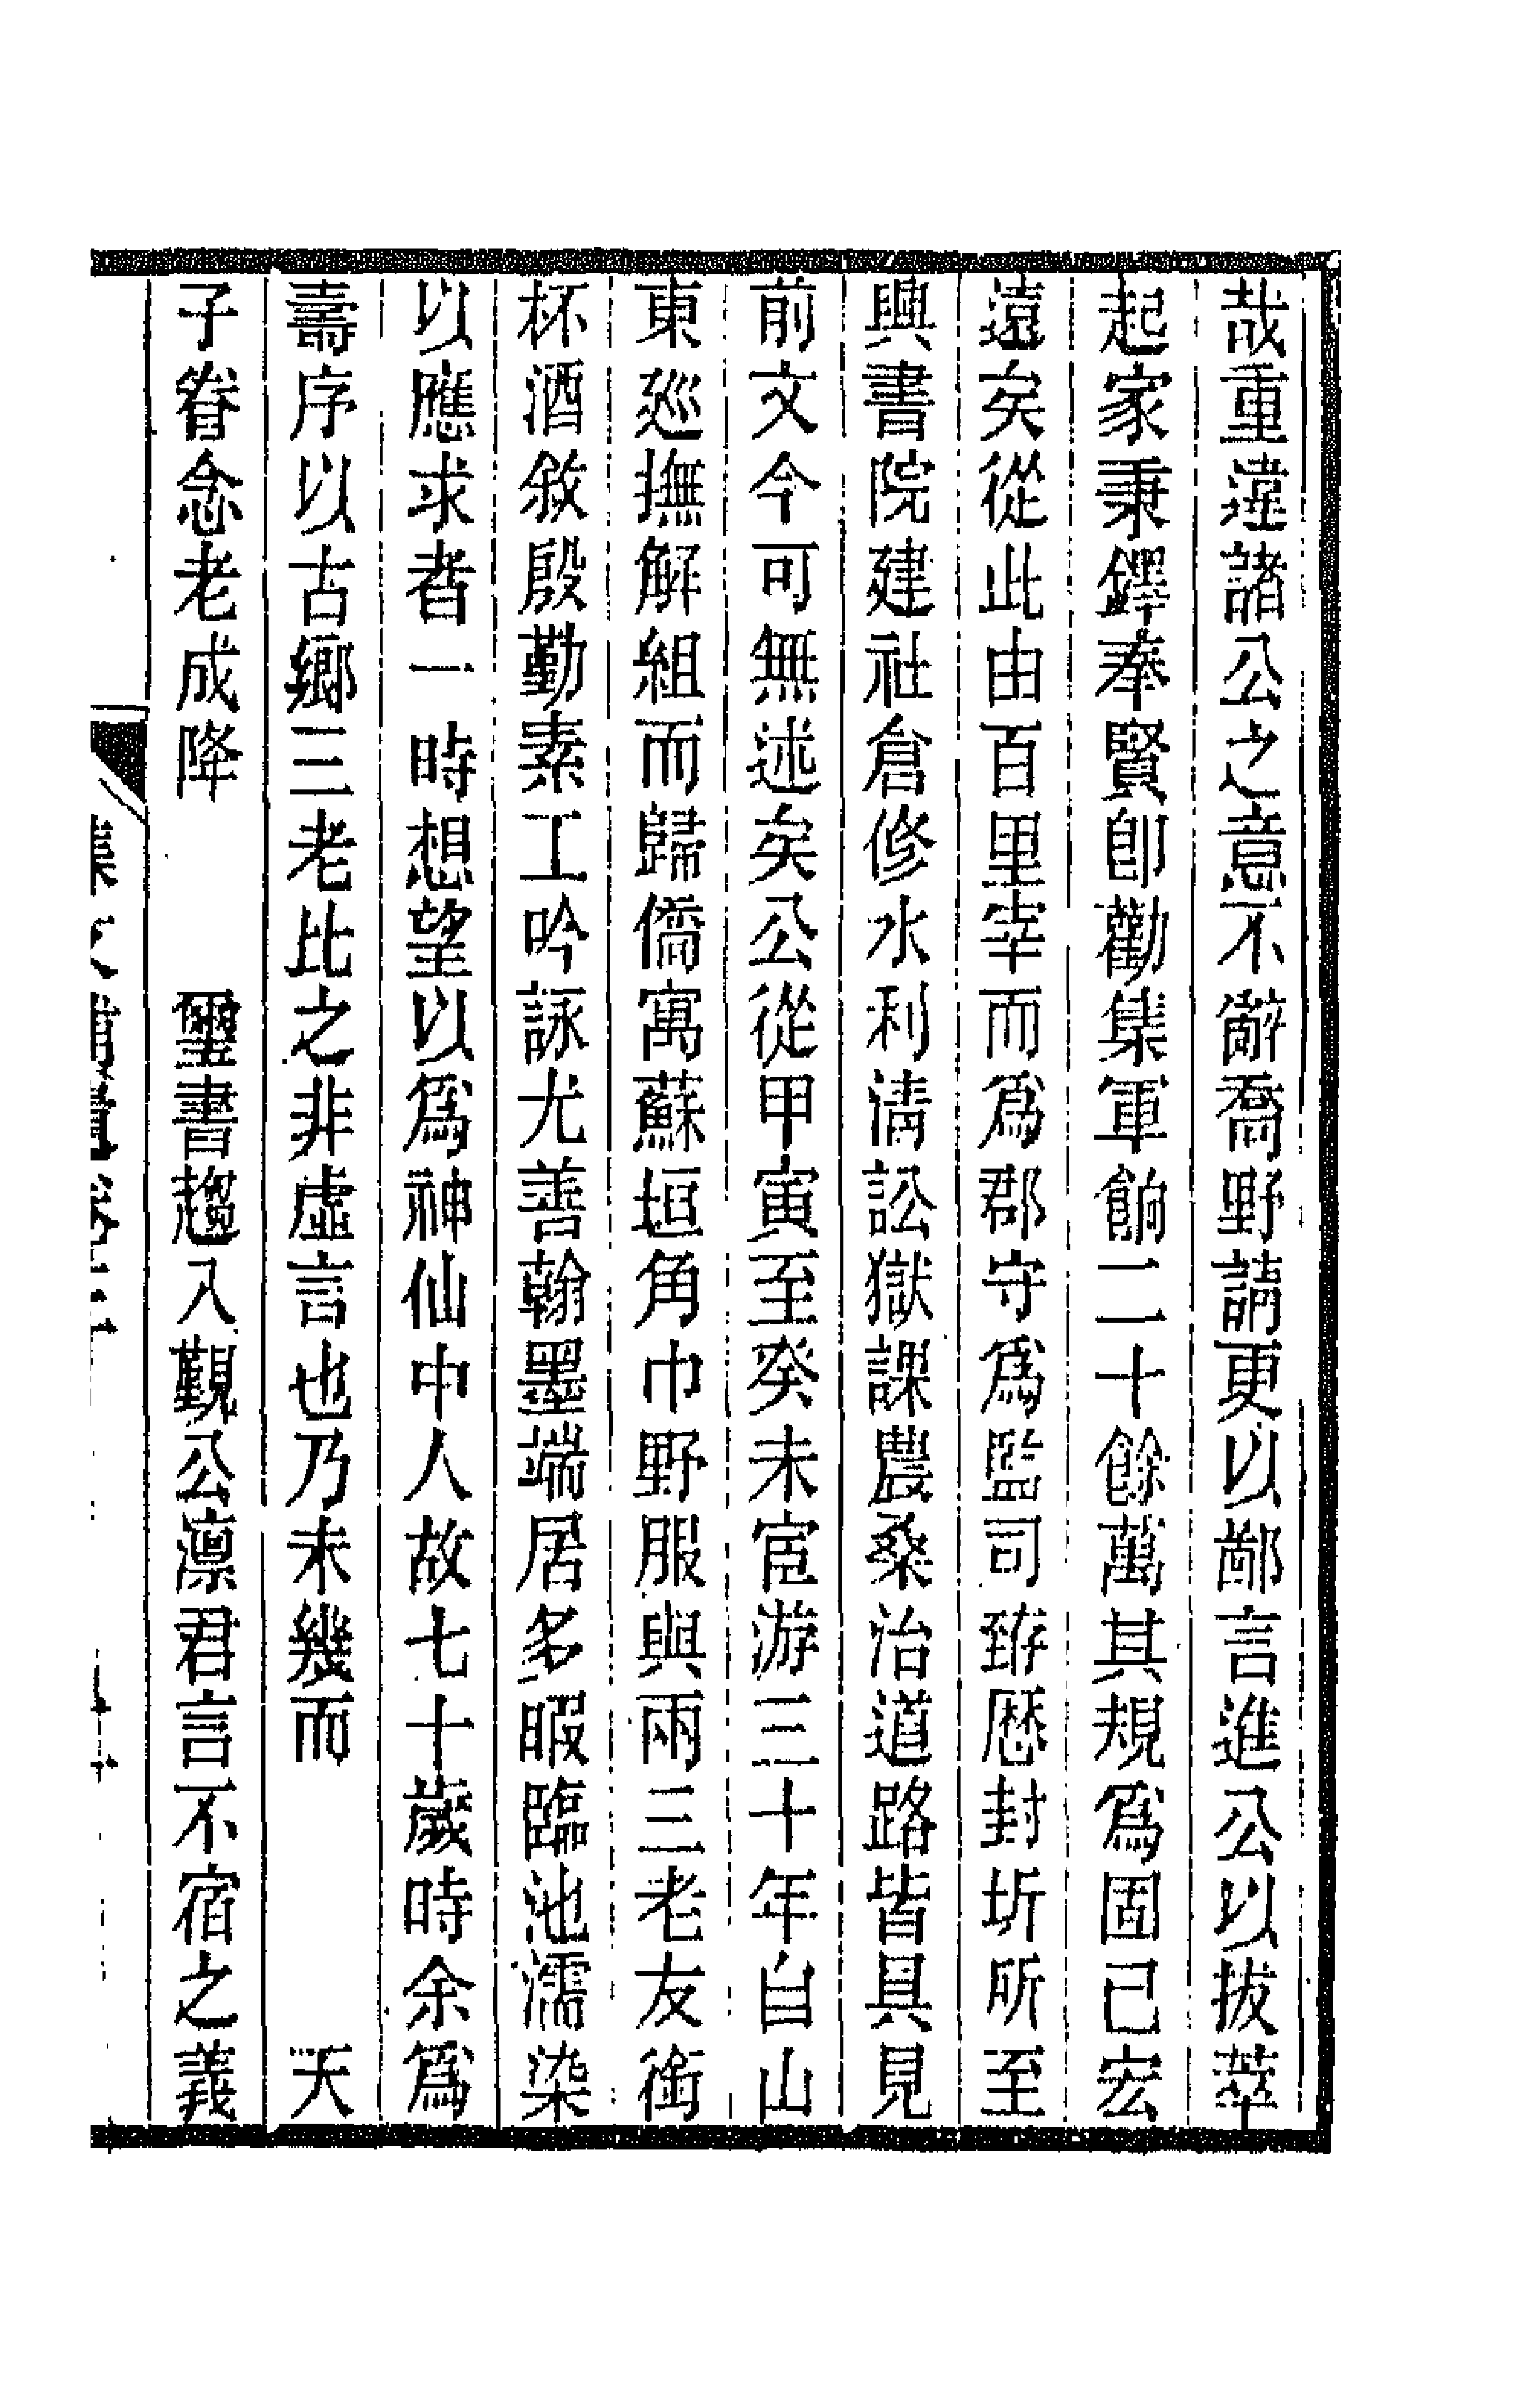 哉重違諸公之意不辭喬野請更以鄙言進公以拔萃
起家秉鐸奉賢卽勸集軍餉二十餘萬其規爲固已宏
遠矣從此由百里宰而爲郡守爲監司臶厯封圻所至
興書院建社倉修水利淸訟獄課農桑治道路皆具見
前文今可無述矣公從甲寅至癸未宦游三十年自山
東廵撫解組而歸僑寓蘇垣角巾野服與兩三老友銜
杯酒敘殷勤素工吟詠尤善翰墨端居多暇臨池濡染
以應求者一時想望以爲神仙中人故七十歲時余爲
壽序以古鄉三老比之非虛言也乃未幾而　　　天
子眷念老成降　　璽書趨入覲公凛君言不宿之義